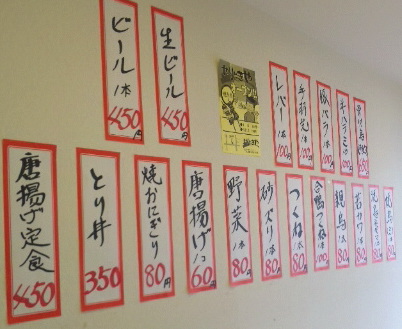 ビール 1本 450円
生ビール 450円
レバー 1本 100円
手羽先 1本 100円
豚バラ 1本 100円
牛ハラミ 1本 100円
唐揚げ定食 450
とり丼 350
焼おにぎり 80円
唐揚げ 1コ 60
野菜 1本 80円
砂ズリ 1本 80円
つくね 1本 80円
合鴨つくね 1本 100
親鳥 1本 80
若カワ 1本 80